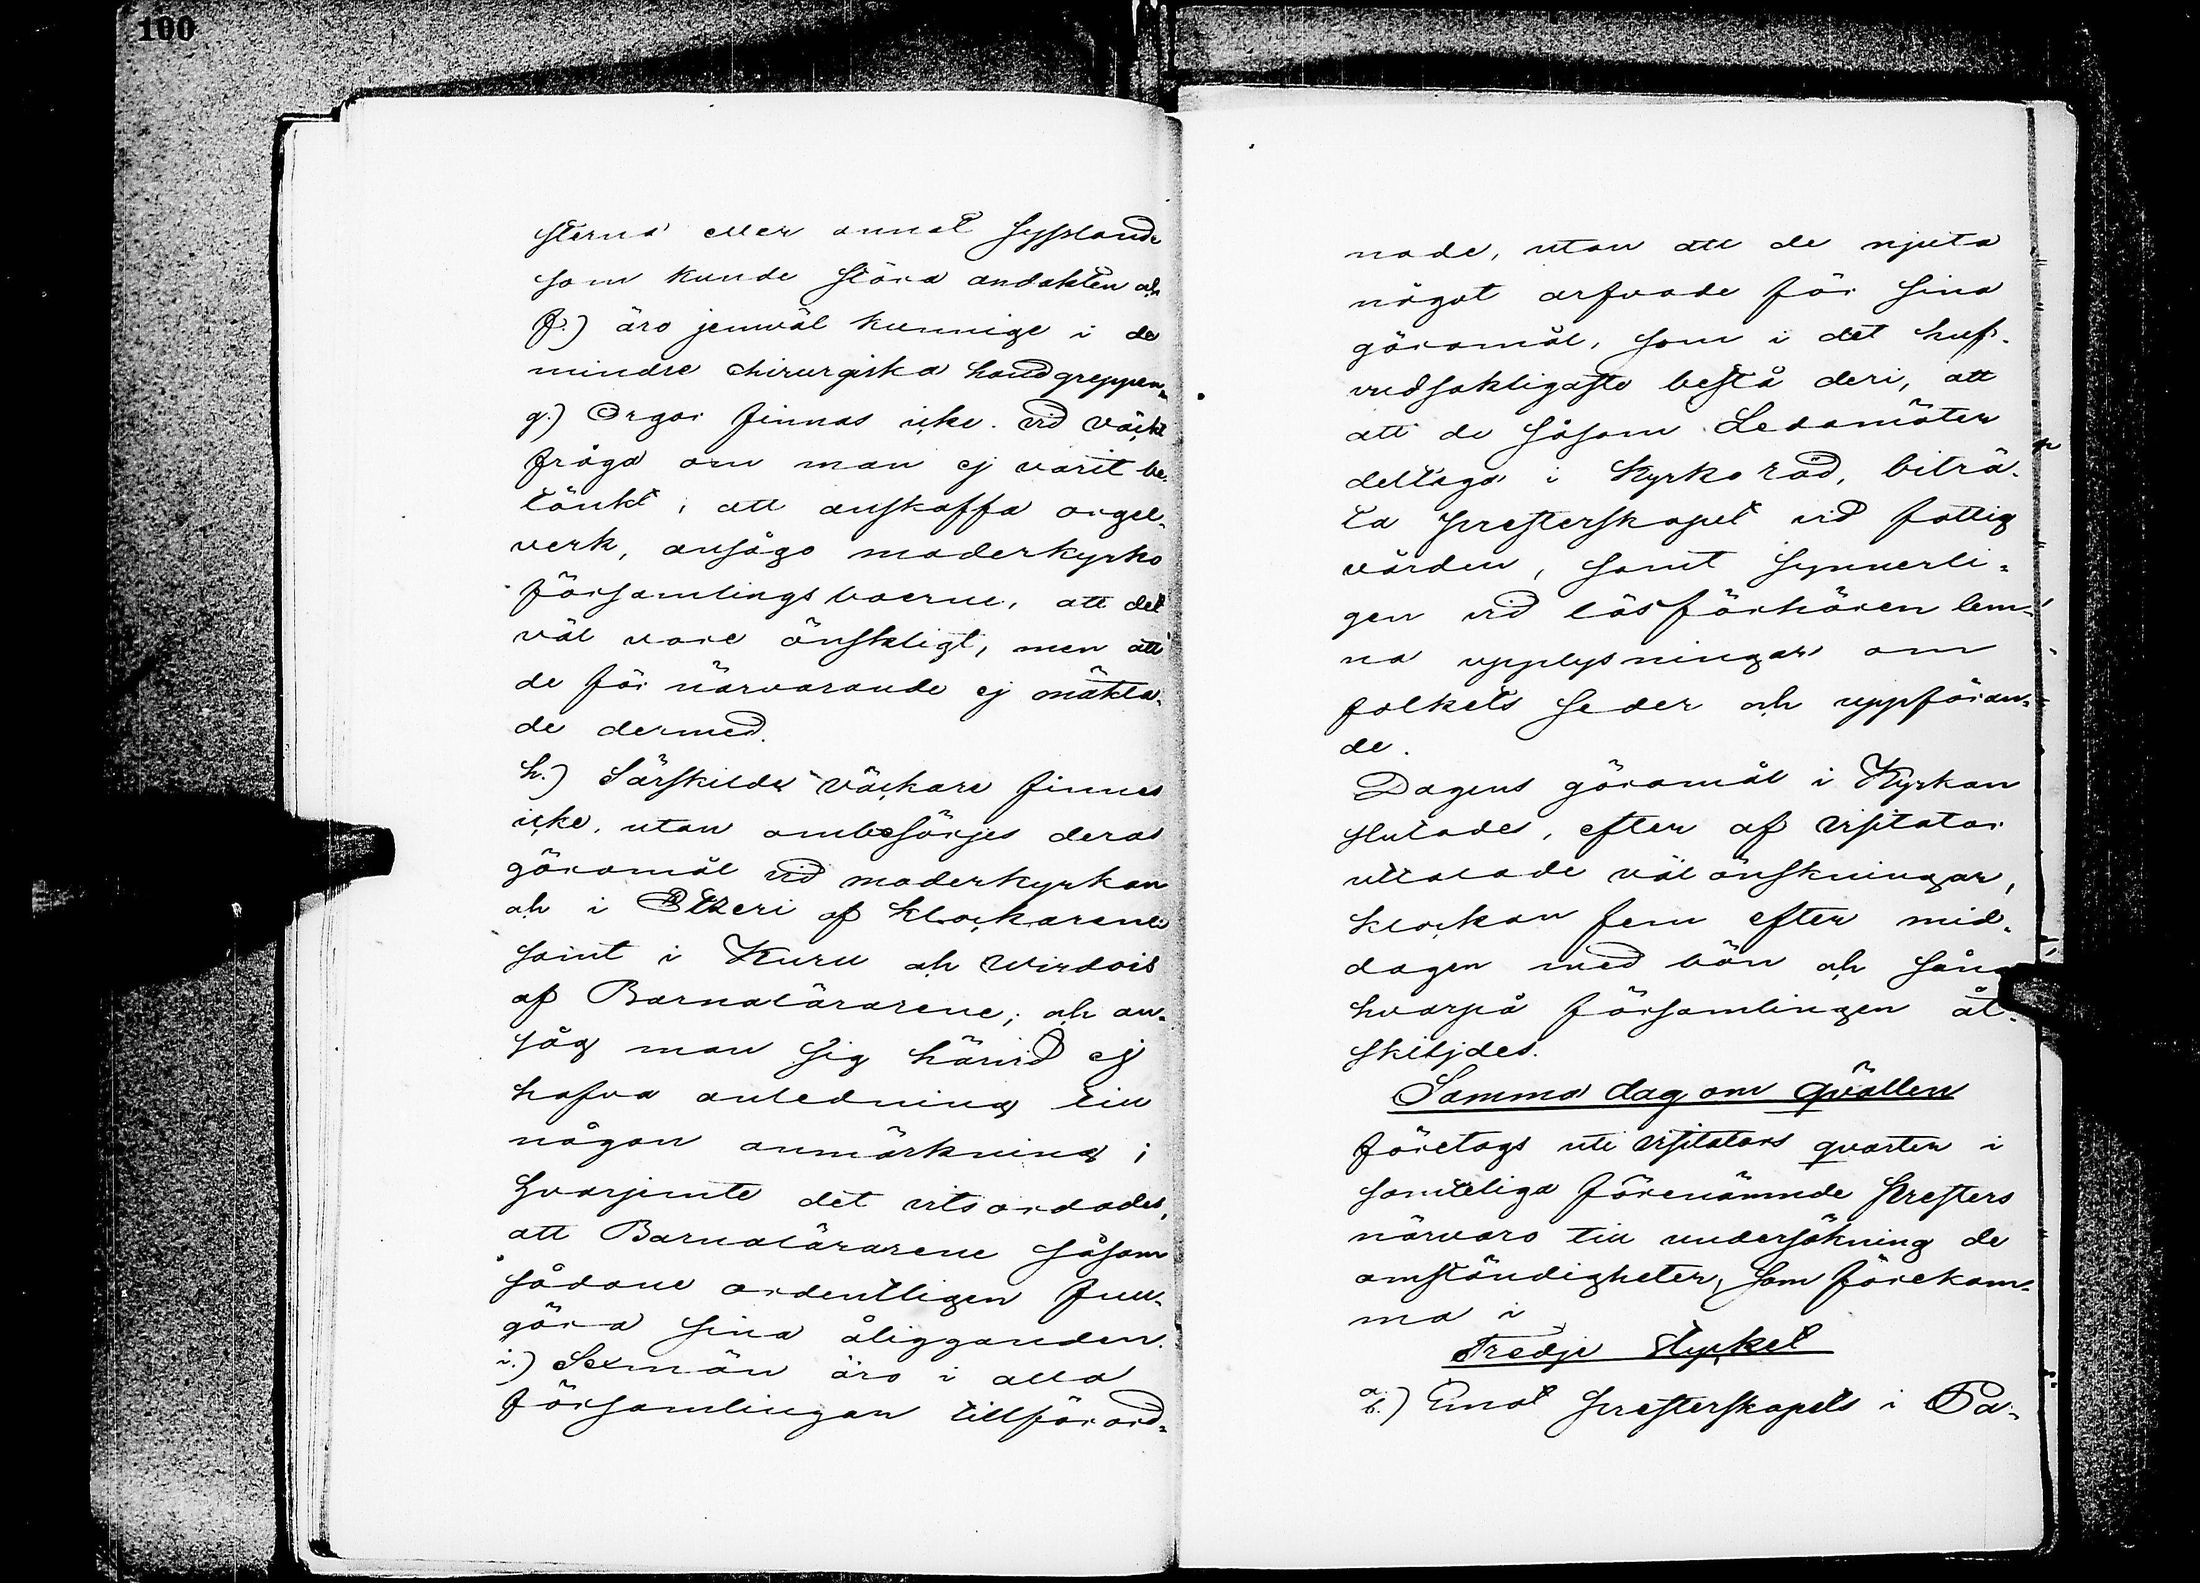 100
sterna eller annat sysslande
som kunde störa andakten och
f.) äro jemväl kunnige i de
mindre chirurgiska handgreppen.
g.) Orgor finnas icke. vid väckt
fråga om man ej varit be-
tänkt; att anskaffa orgel-
verk, ansågo moderkyrko
församlingsboerne, att det
väl vore önskligt, men att
de för närvarande ej mäkta-
de dermed.
h.) Särskilde väckare finnes
icke, utan ombesörjes deras
göromål vid moderkyrkan
och i Etzeri af klockarene
samt i Kuru och Wirdois
af Barnalärarene; och an-
såg man sig härvid ej
hafva anledning till
någon anmärkning;
hvarjemte det vitsordades,
att Barnalärarene såsom
sådane ordentligen full-
göra sina åligganden.
i.) Sexmän äro i alla
församlingar tillförord-
nade, utan att de njuta
något arfvode för sina
göromål, som i det huf-
vudsakligaste bestå deri, att
att de såsom Ledamöter
deltaga i Kyrko råd, biträ-
da presterskapet vid fattig
vården, samt synnerli-
gen vid läsförhören lem-
na upplysningar om
folkets seder och uppföran-
de.
Dagens göromål i Kyrkan
slutades, efter af Visitator
uttalade välönskningar,
klockan fem efter mid-
dagen med bön och sång
hvarpå församlingen åt-
skiljdes.
Samma dag om qvällen
företogs uti Visitators qvarter i
samteliga förenämnde Presters
närvaro till undersökning de
omständigheter, som förekom-
ma i
Tredje Stycket
a.) b.) Emot presterskapets i Pa-